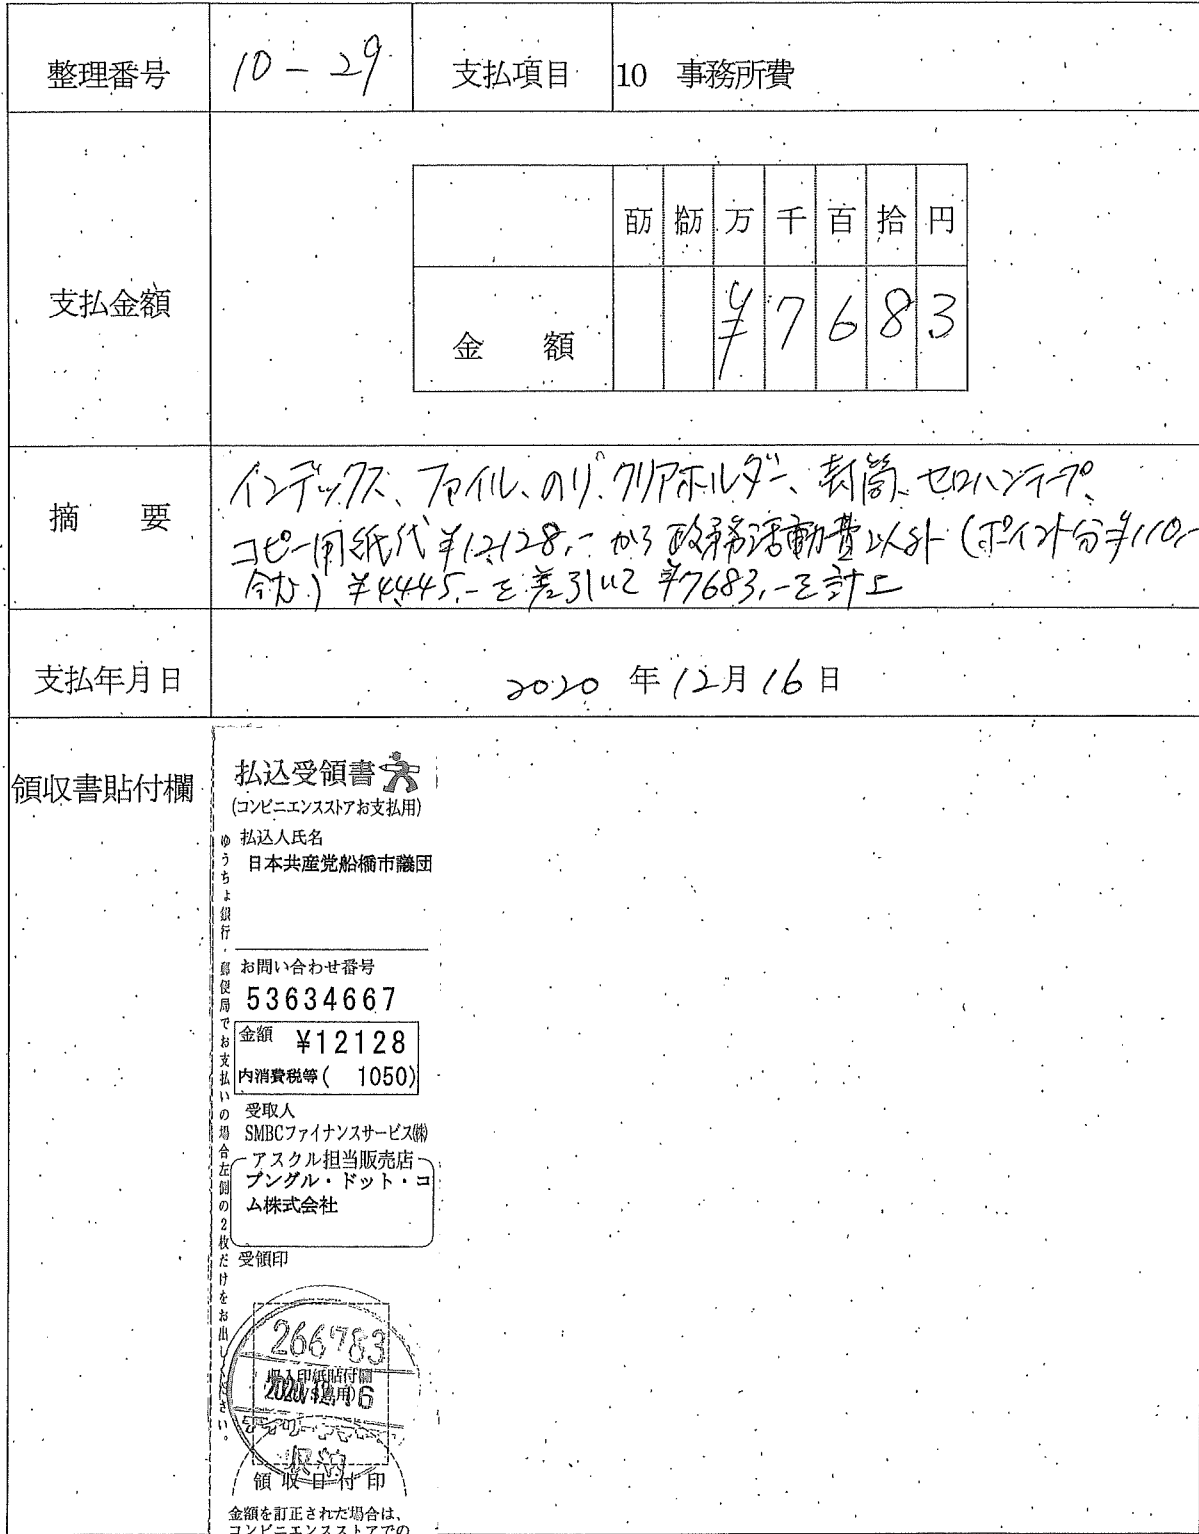 整理番号 10-29 支払項目 10 事務所費
支払金額
百万 拾万 万 千 百 拾 円
金額 ¥ 7 6 8 3
摘要
インデックス、ファイル、のり、クリアホルダー、封筒、セロハンテープ、
コピー用紙代¥12,128.-から政務活動費以外(ポイント分¥110.-
含む)¥4445.-を差引いて¥7683.-を計上
支払年月日 2020年12月16日
領収書貼付欄
払込受領書
(コンビニエンスストアお支払用)
払込人氏名
日本共産党船橋市議団
ゆうちょ銀行・郵便局でお支払いの場合左側の2枚だけをお出しください。
お問い合わせ番号
53634667
金額 ¥12128
内消費税等( 1050)
受取人
SMBCファイナンスサービス㈱
アスクル担当販売店
ブングル・ドット・コ
ム株式会社
受領印
266783
収入印紙貼付欄
2020.12.16
領収日付印
金額を訂正された場合は、
コンビニエンスストアでの